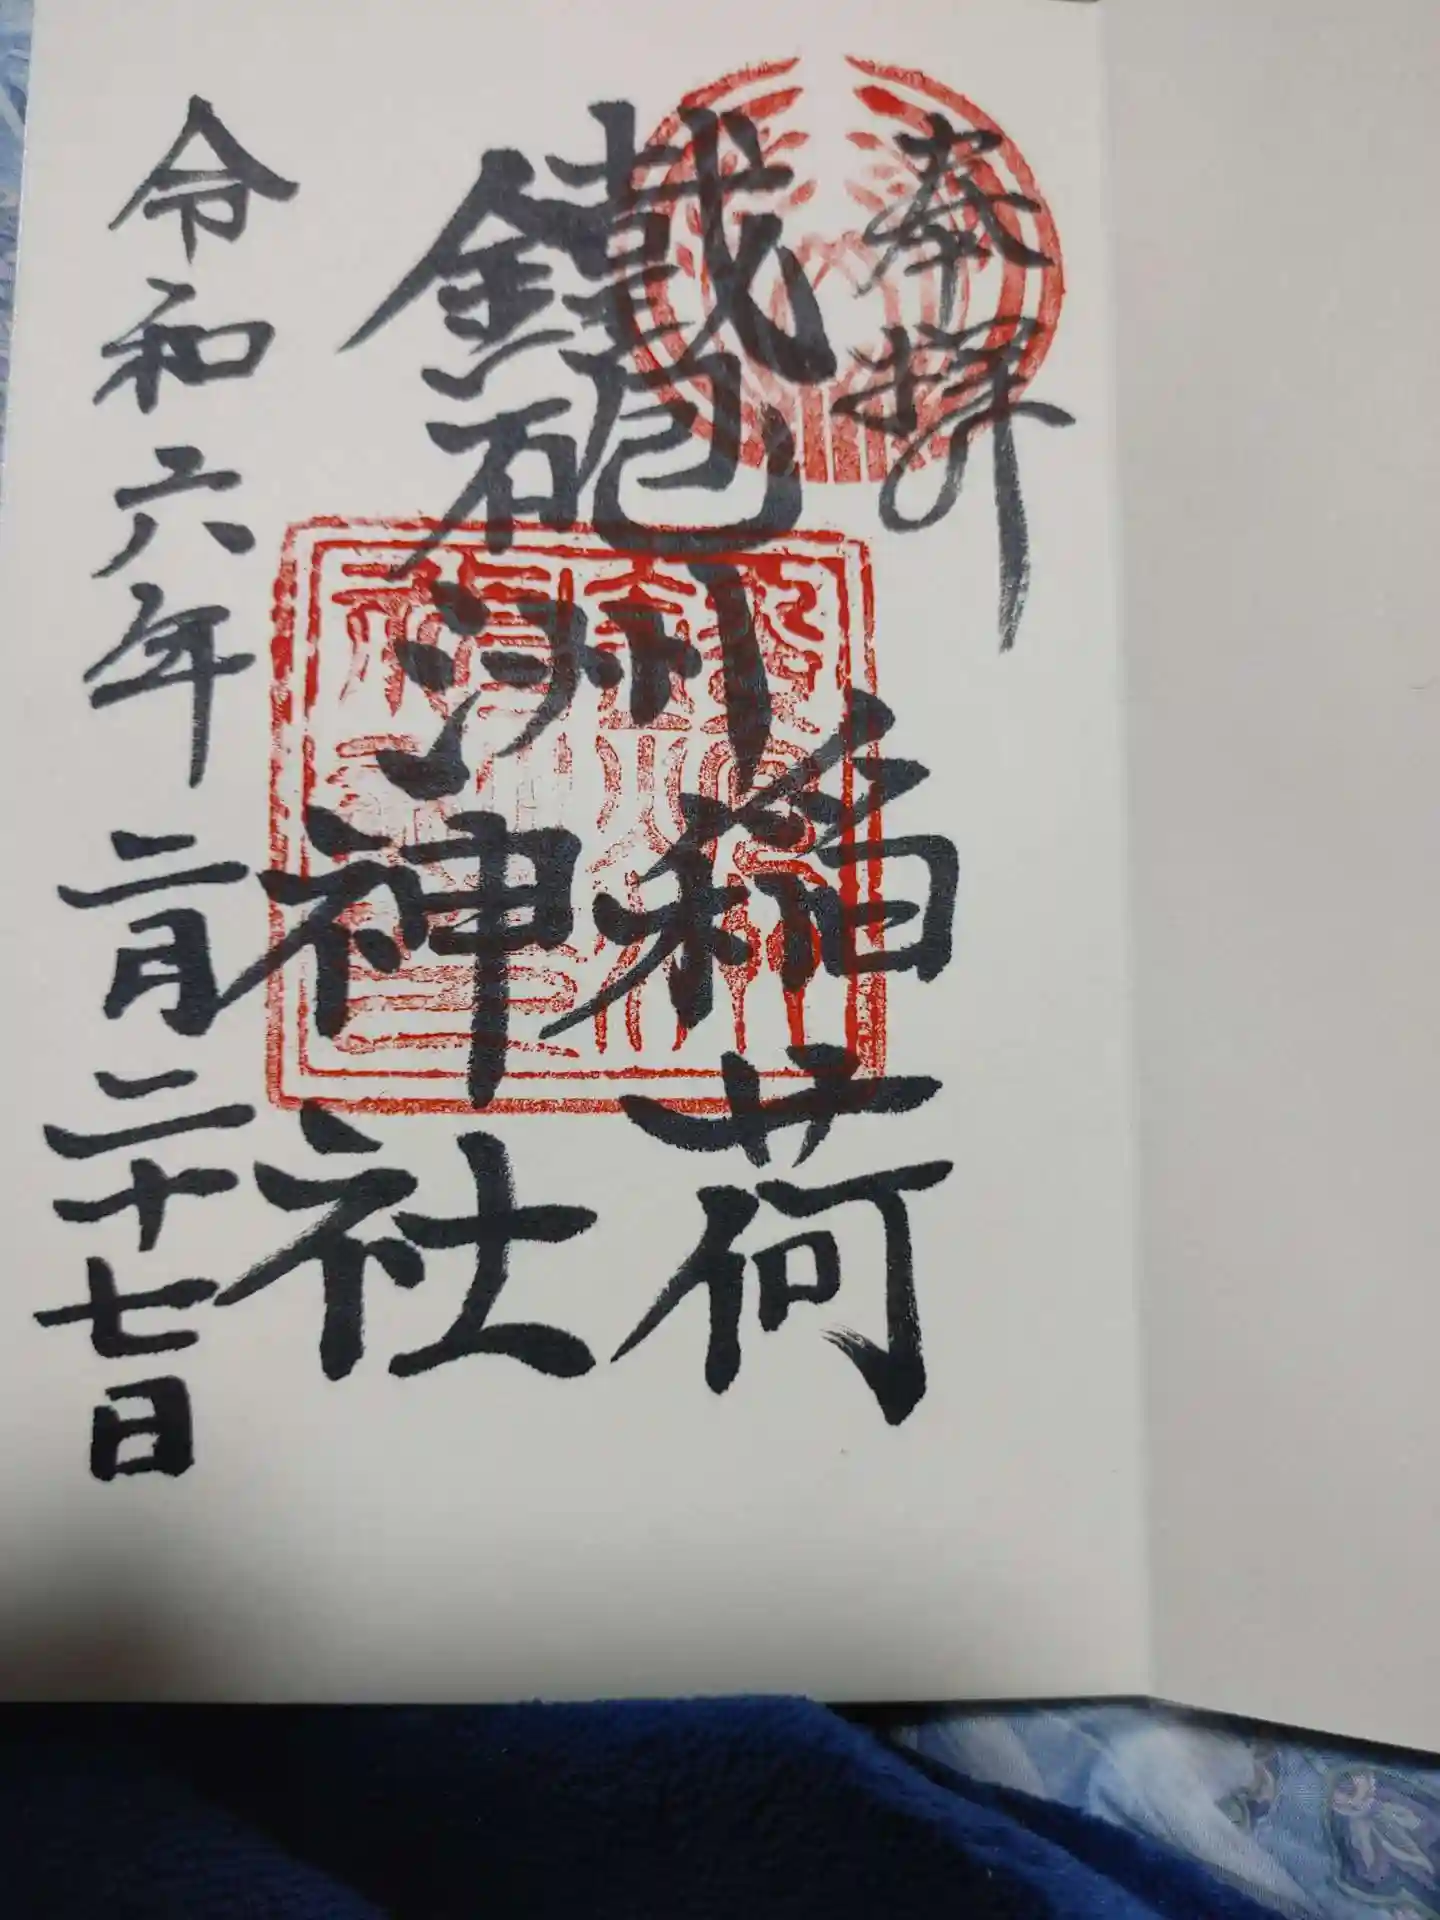 奉拝
鐵砲洲稲荷神社
令和六年二月二十七日